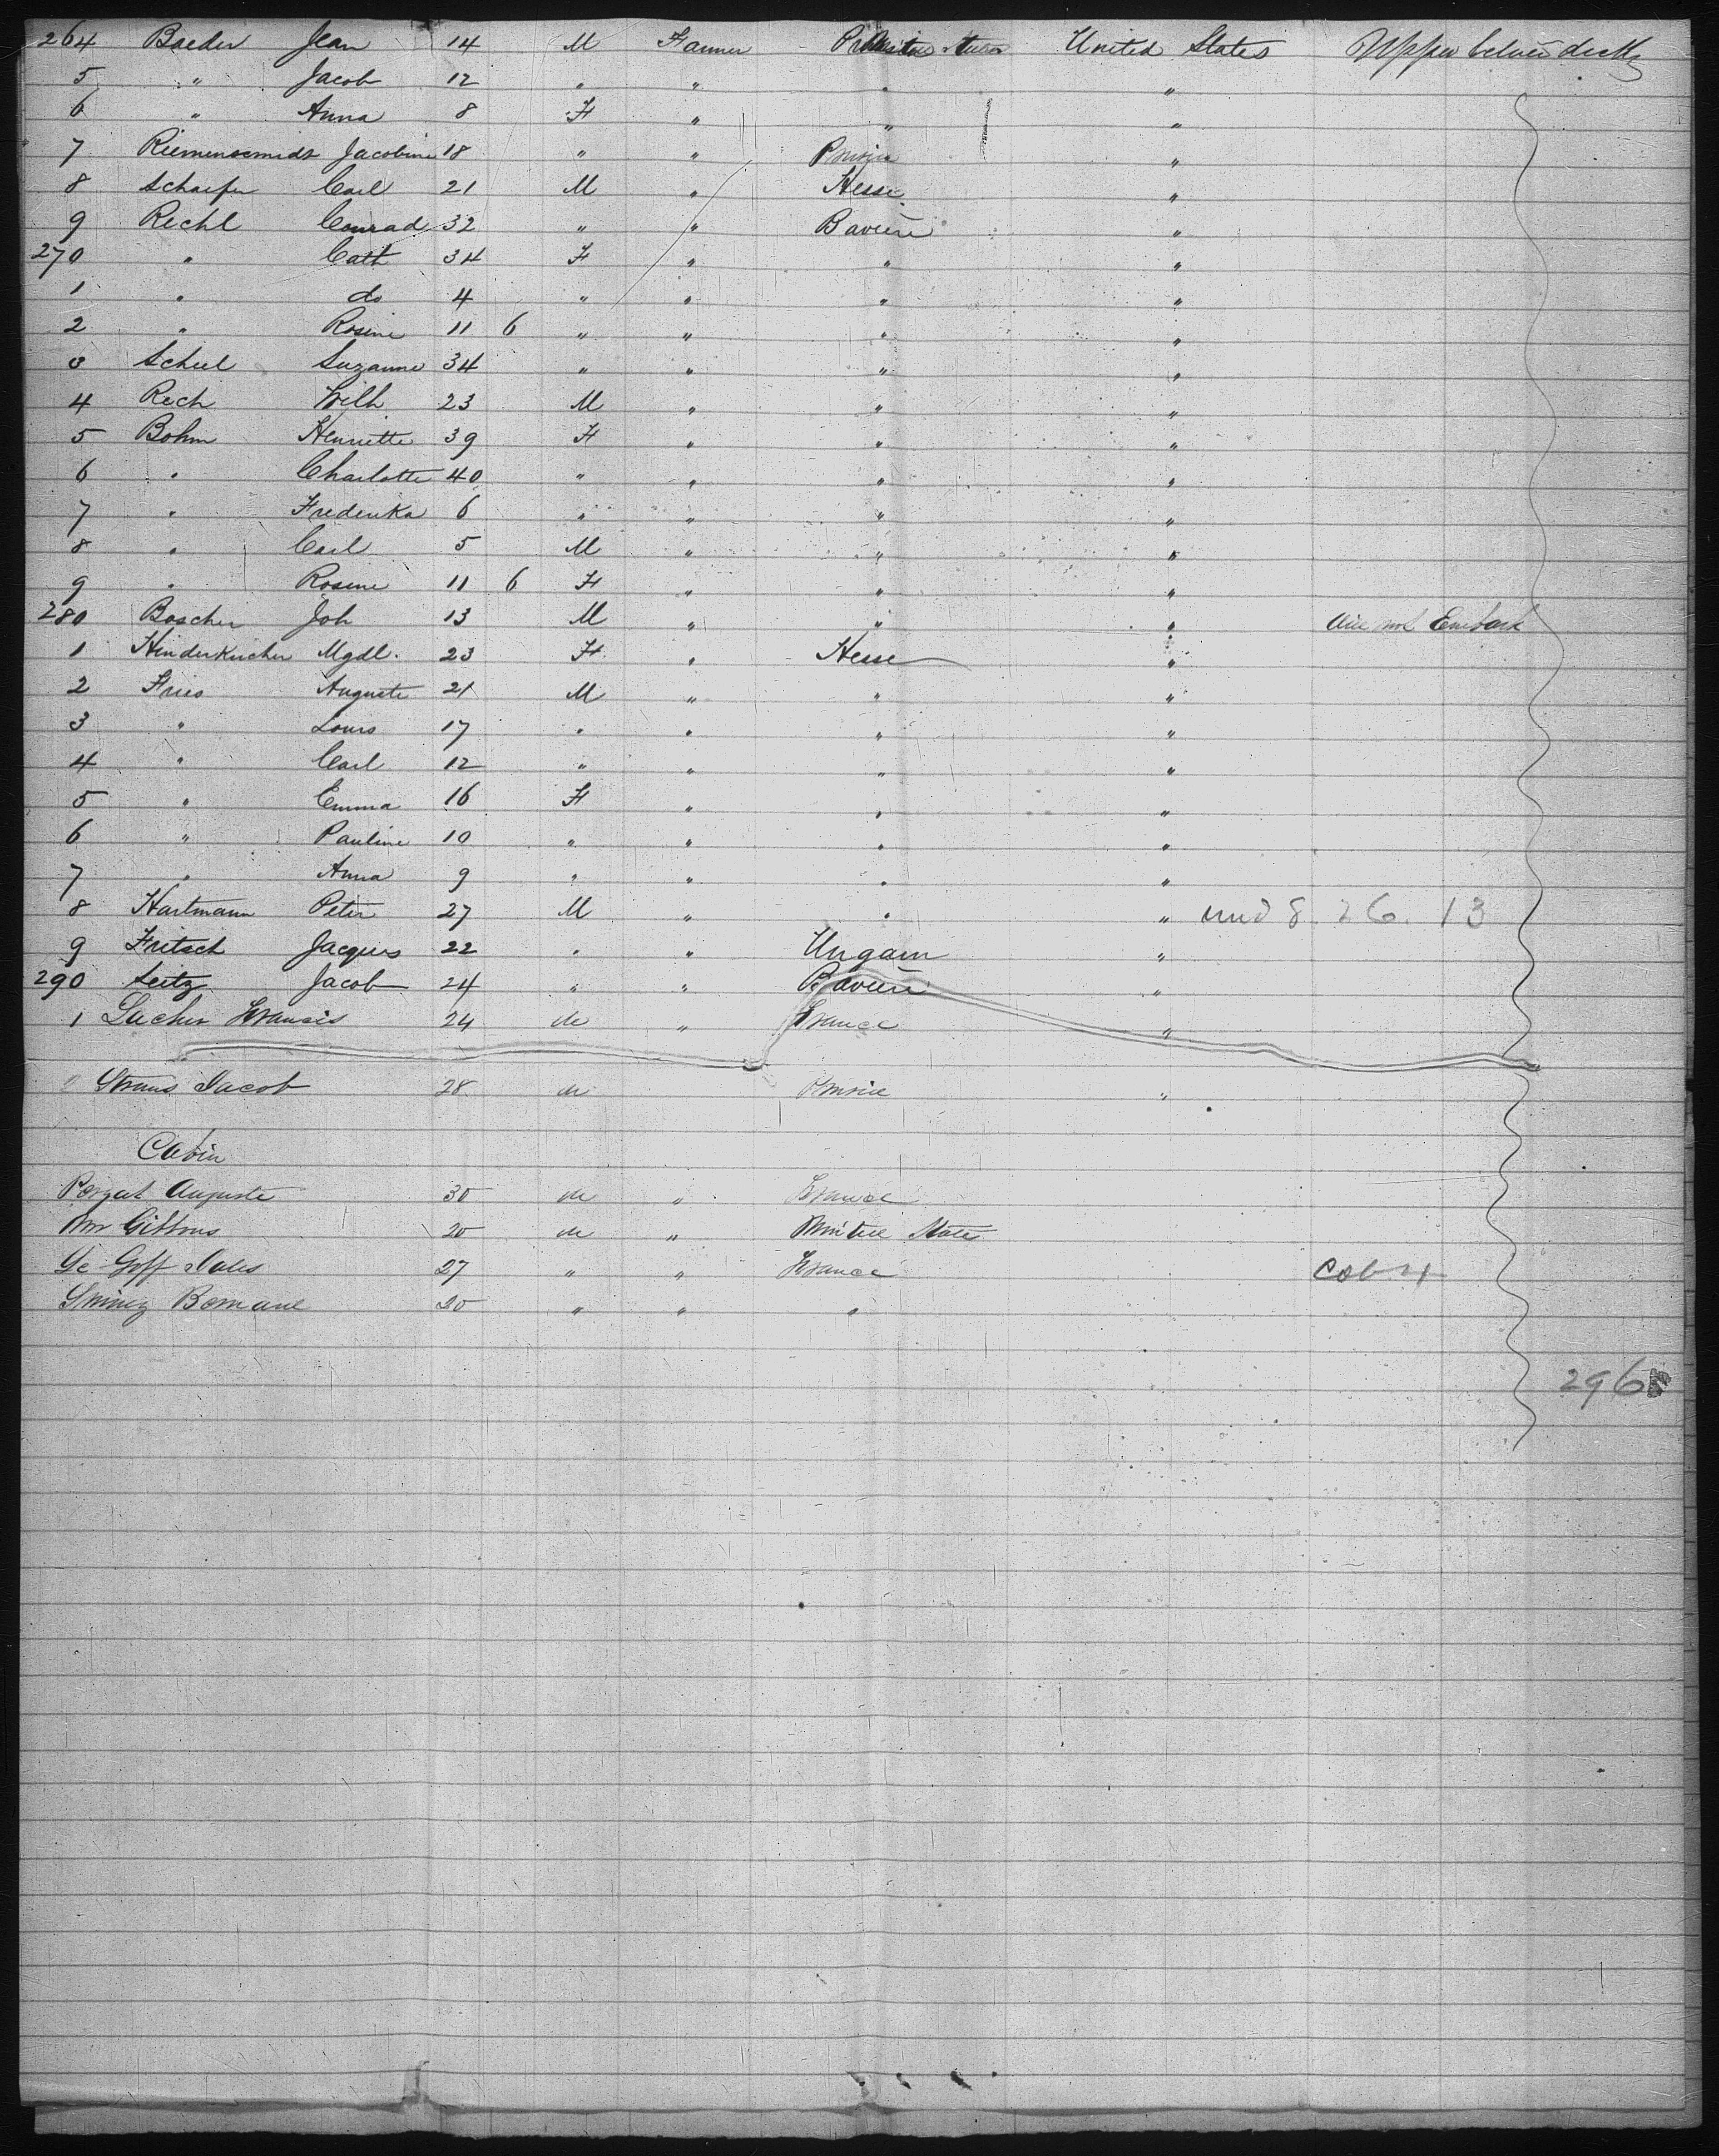 264 Baeder Jean 14 M Farmer United States Upper betwee decks
5 " Jacob 12 " " " "
6 " Anna 8 F " " "
7 Riemenscmidt Jacobine 18 " " Prusia "
8 Schaefer Carl 21 M " Hesse "
9 Rechl Conrad 32 " " Baviere "
270 " Cath 34 F " " "
1 " do 4 " " " "
2 " Rosine 11 6 " " " "
3 Scheel Suzanne 34 " " " "
4 Rech Wilh 23 M " " "
5 Bohm Henriette 39 F " " "
6 " Charlotte 40 " " " "
7 " Frederika 6 " " " "
8 " Carl 5 M " " "
9 " Rosine 11 6 F " " "
280 Boscher Joh 13 M " " " not Embark
1 Hinderkircher Mgdl. 23 F " Hesse "
2 Fries Auguste 21 M " " "
3 " Louis 17 " " " "
4 " Carl 12 " " " "
5 " Emma 16 F " " "
6 " Pauline 10 " " " "
7 " Anna 9 " " " "
8 Hartmann Peter 27 M " " " und 8. 26. 13
9 Fritsch Jacques 22 " " Ungarn "
290 Seitz Jacob 24 " " Baviere "
1 Lacher Francis 24 M " France "
Straus Jacob 28 M Prusia "
Cabin
Auguste 30 M " France
Gibbons 20 M " State
Le Goff Jules 27 " " France Cab 4
Romane 20 " " "
296